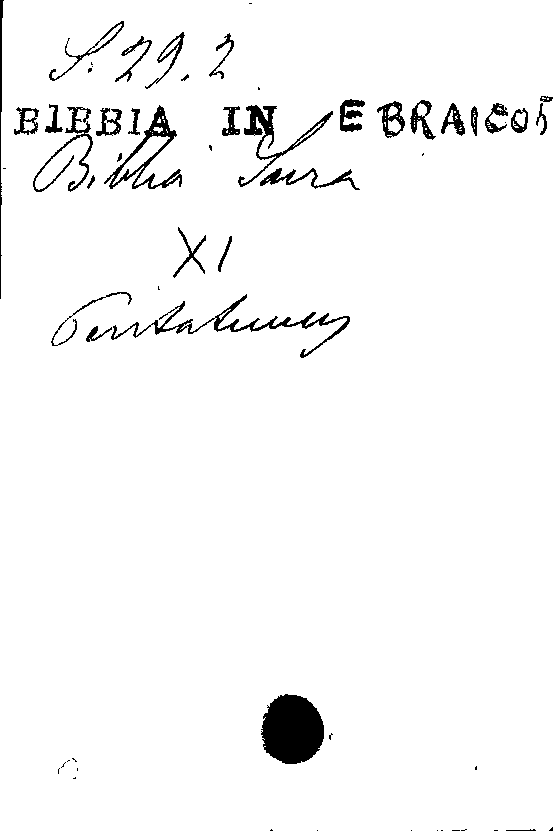 S. 29.2
BIBBIA IN EBRAICO 5
Biblia Sacra
XI
Pentateucus